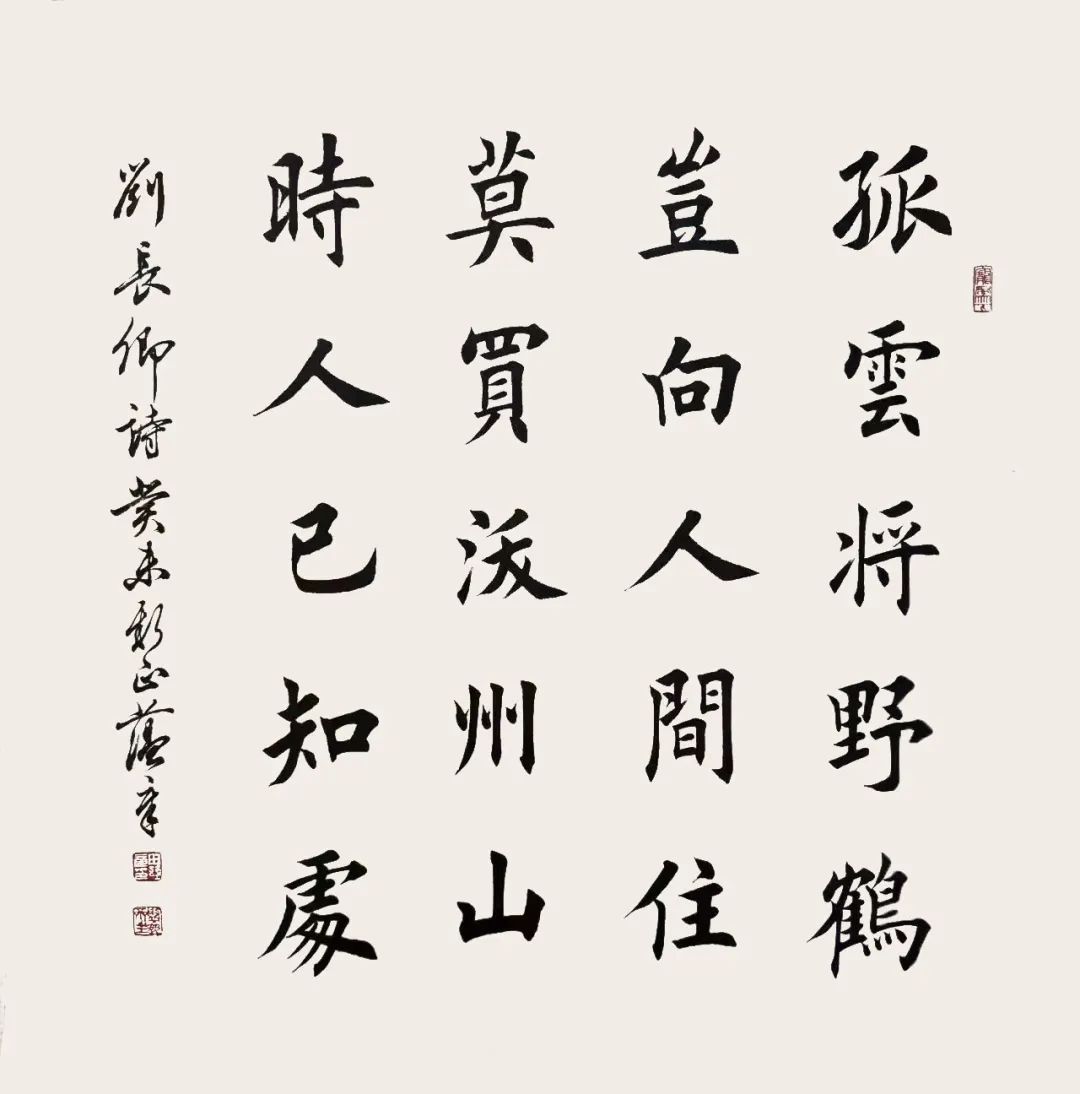 孤雲将野鶴
豈向人間住
莫買沃州山
時人已知處
劉長卿詩癸未新正蘊章